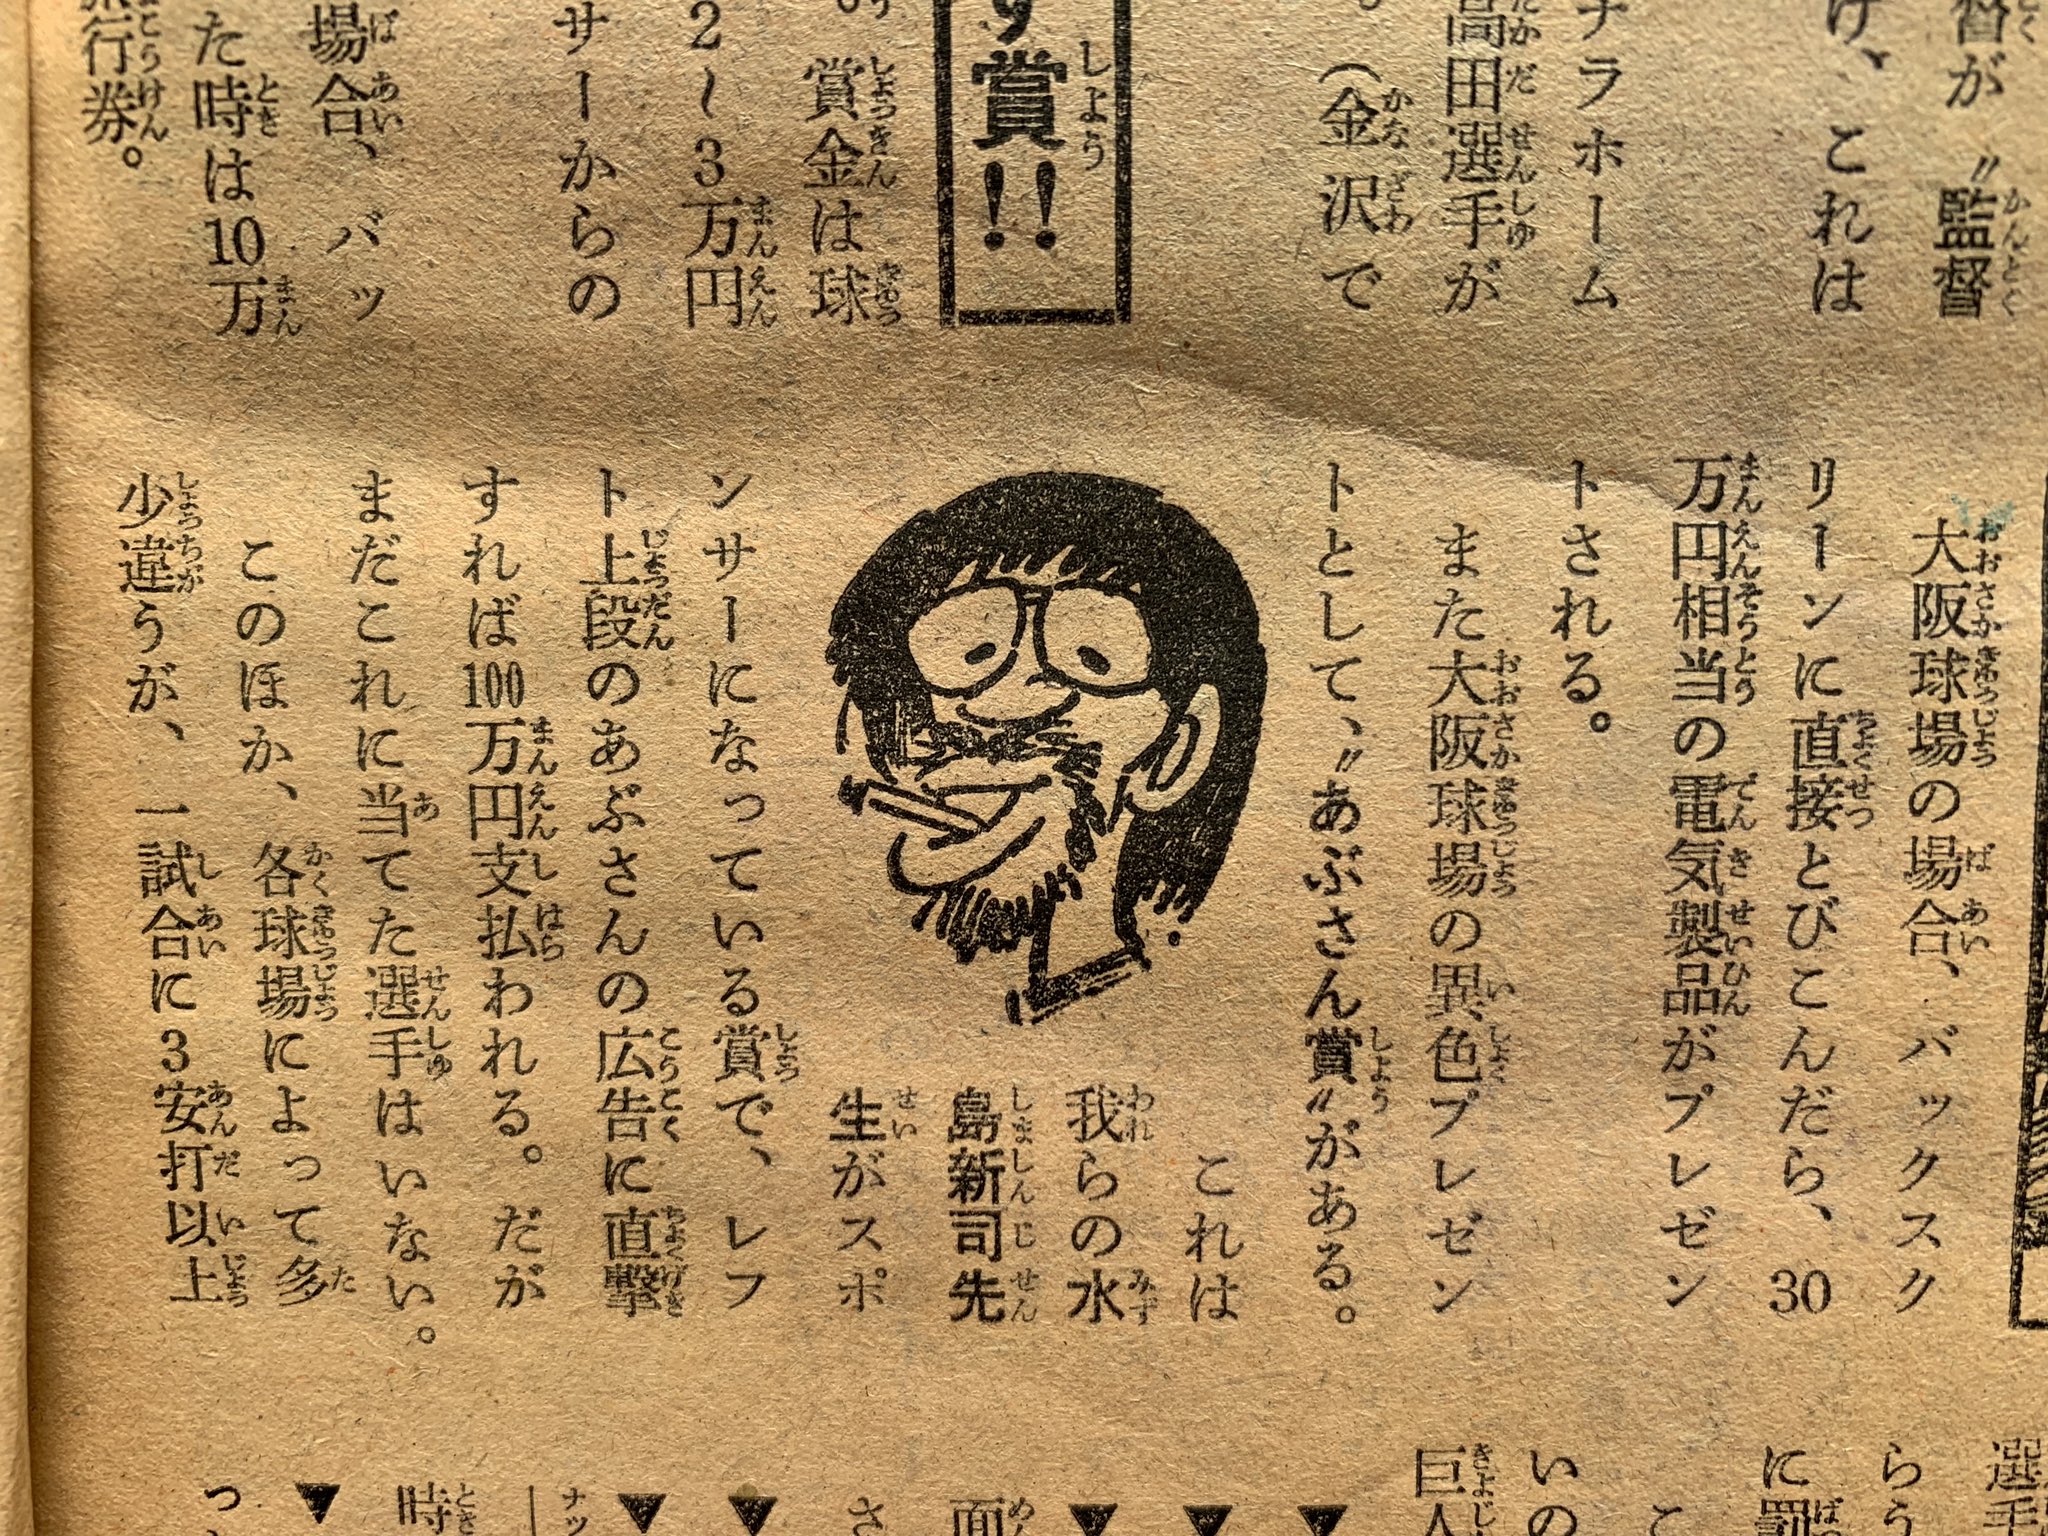 督が〝監督
け、これは
ナラホーム
高田選手が
。（金沢で
す賞!!
。賞金は球
2〜3万円
サーからの
場合、バッ
た時は10万
旅行券。
大阪球場の場合、バックスク
リーンに直接とびこんだら、30
万円相当の電気製品がプレゼン
トされる。
また大阪球場の異色プレゼン
トとして、〝あぶさん賞〟がある。
これは
我らの水
島新司先
生がスポ
ンサーになっている賞で、レフ
ト上段のあぶさんの広告に直撃
すれば100万円支払われる。だが
まだこれに当てた選手はいない。
このほか、各球場によって多
少違うが、一試合に3安打以上
選手
らう
に罰
こ
いの
巨人
▼
▼
▼
面
さ
▼
▼
ナッ
時
▼
つ